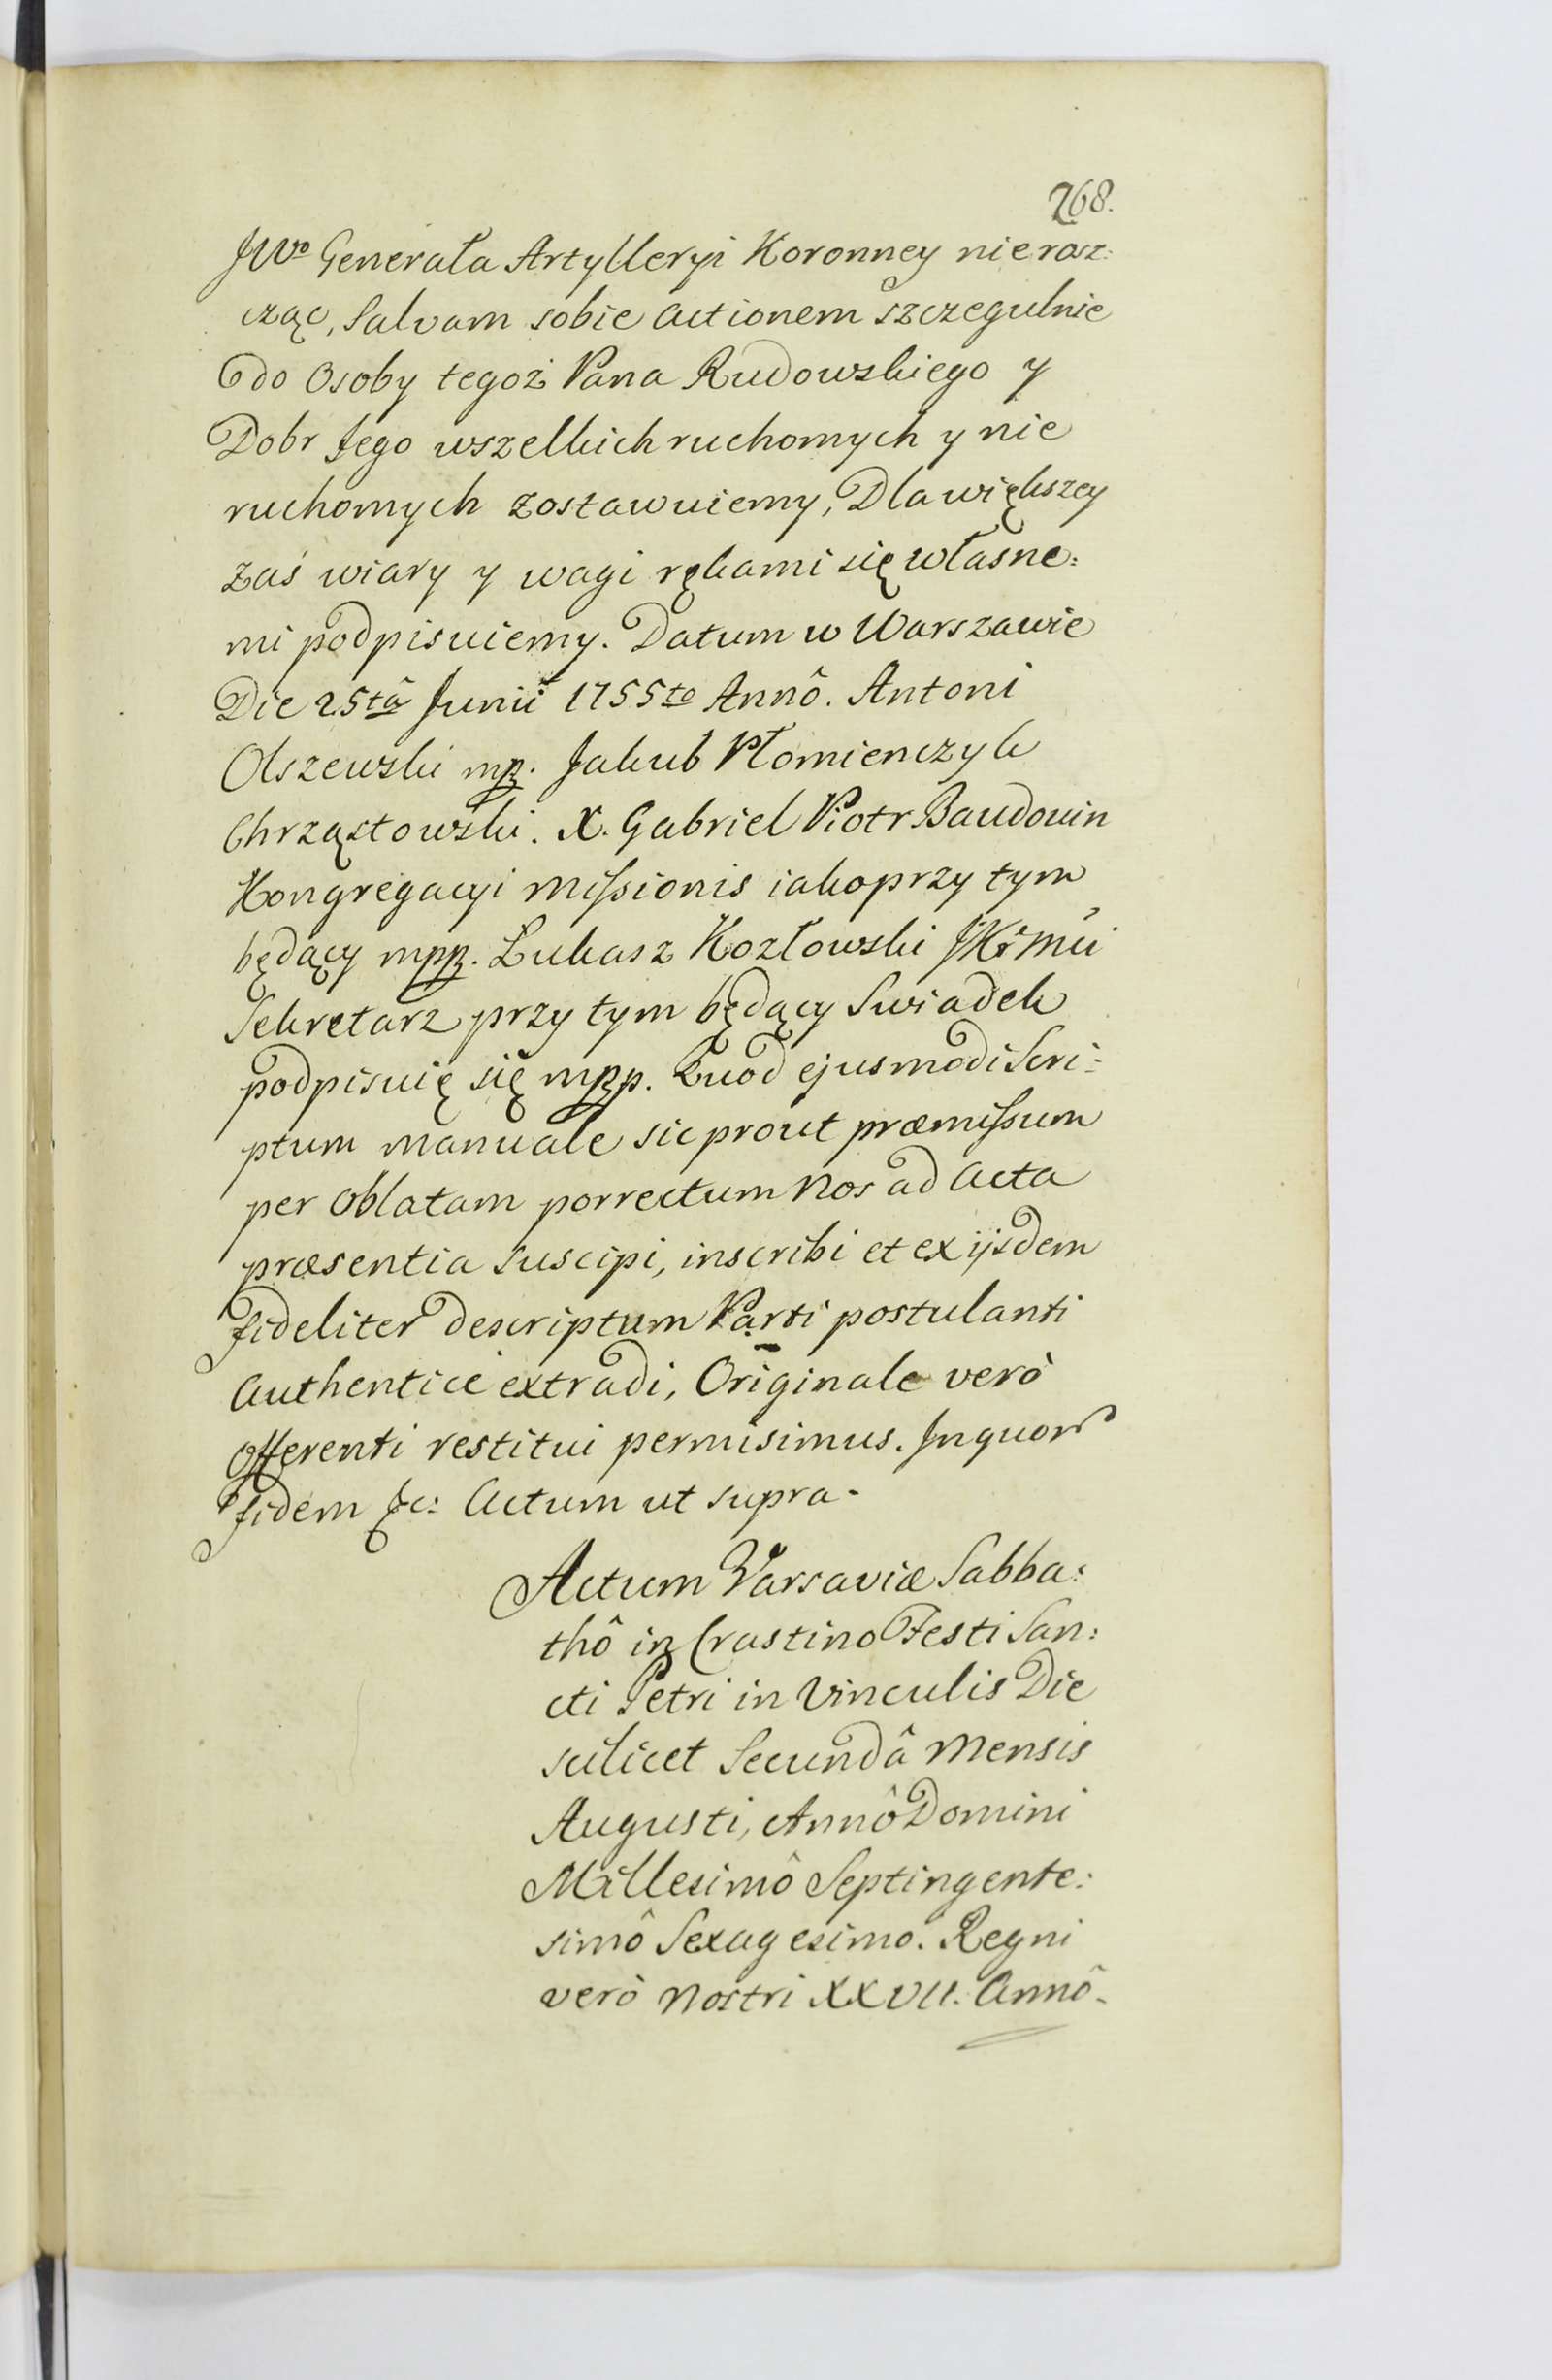 268.
JWo Generała Artylleryi Koronney nie rosz:
cząc, Salvam sobie Actionem szczegulnie
do Osoby tegoż Pana Rudowskiego y
Dobr Jego wszelkich ruchomych y nie
ruchomych zostawuiemy, Dla większey
zaś wiary y wagi rękami się własne:
mi podpisuiemy. Datum w Warszawie
Die 25tâ Junii 1755to Annô. Antoni
Olszewski mp. Jakub Płomienczyk
Chrząstowski. X. Gabriel Piotr Baudouin
Kongregacyi Missionis iako przy tym
będący mpp. Łukasz Kozłowski JKr Mći
Sekretarz przy tym będący Swiadek
podpisuię się mpp. Quod ejusmodi Scri:
ptum manuale sic prout præmissum
per Oblatam porrectum Nos ad Acta
præsentia suscipi, inscribi et ex ijsdem
fideliter descriptum Parti postulanti
Authenticè extradi, Originale verò
Offerenti restitui permisimus. In quor
fidem &c: Actum ut supra -
Actum Varsaviæ Sabba:
thô in Crastino Festi San:
cti Petri in Vinculis Die
scilicet Secundâ Mensis
Augusti, Annô Domini
Millesimô Septingente:
simô Sexagesimo. Regni
verò Nostri XXVII. Annô -